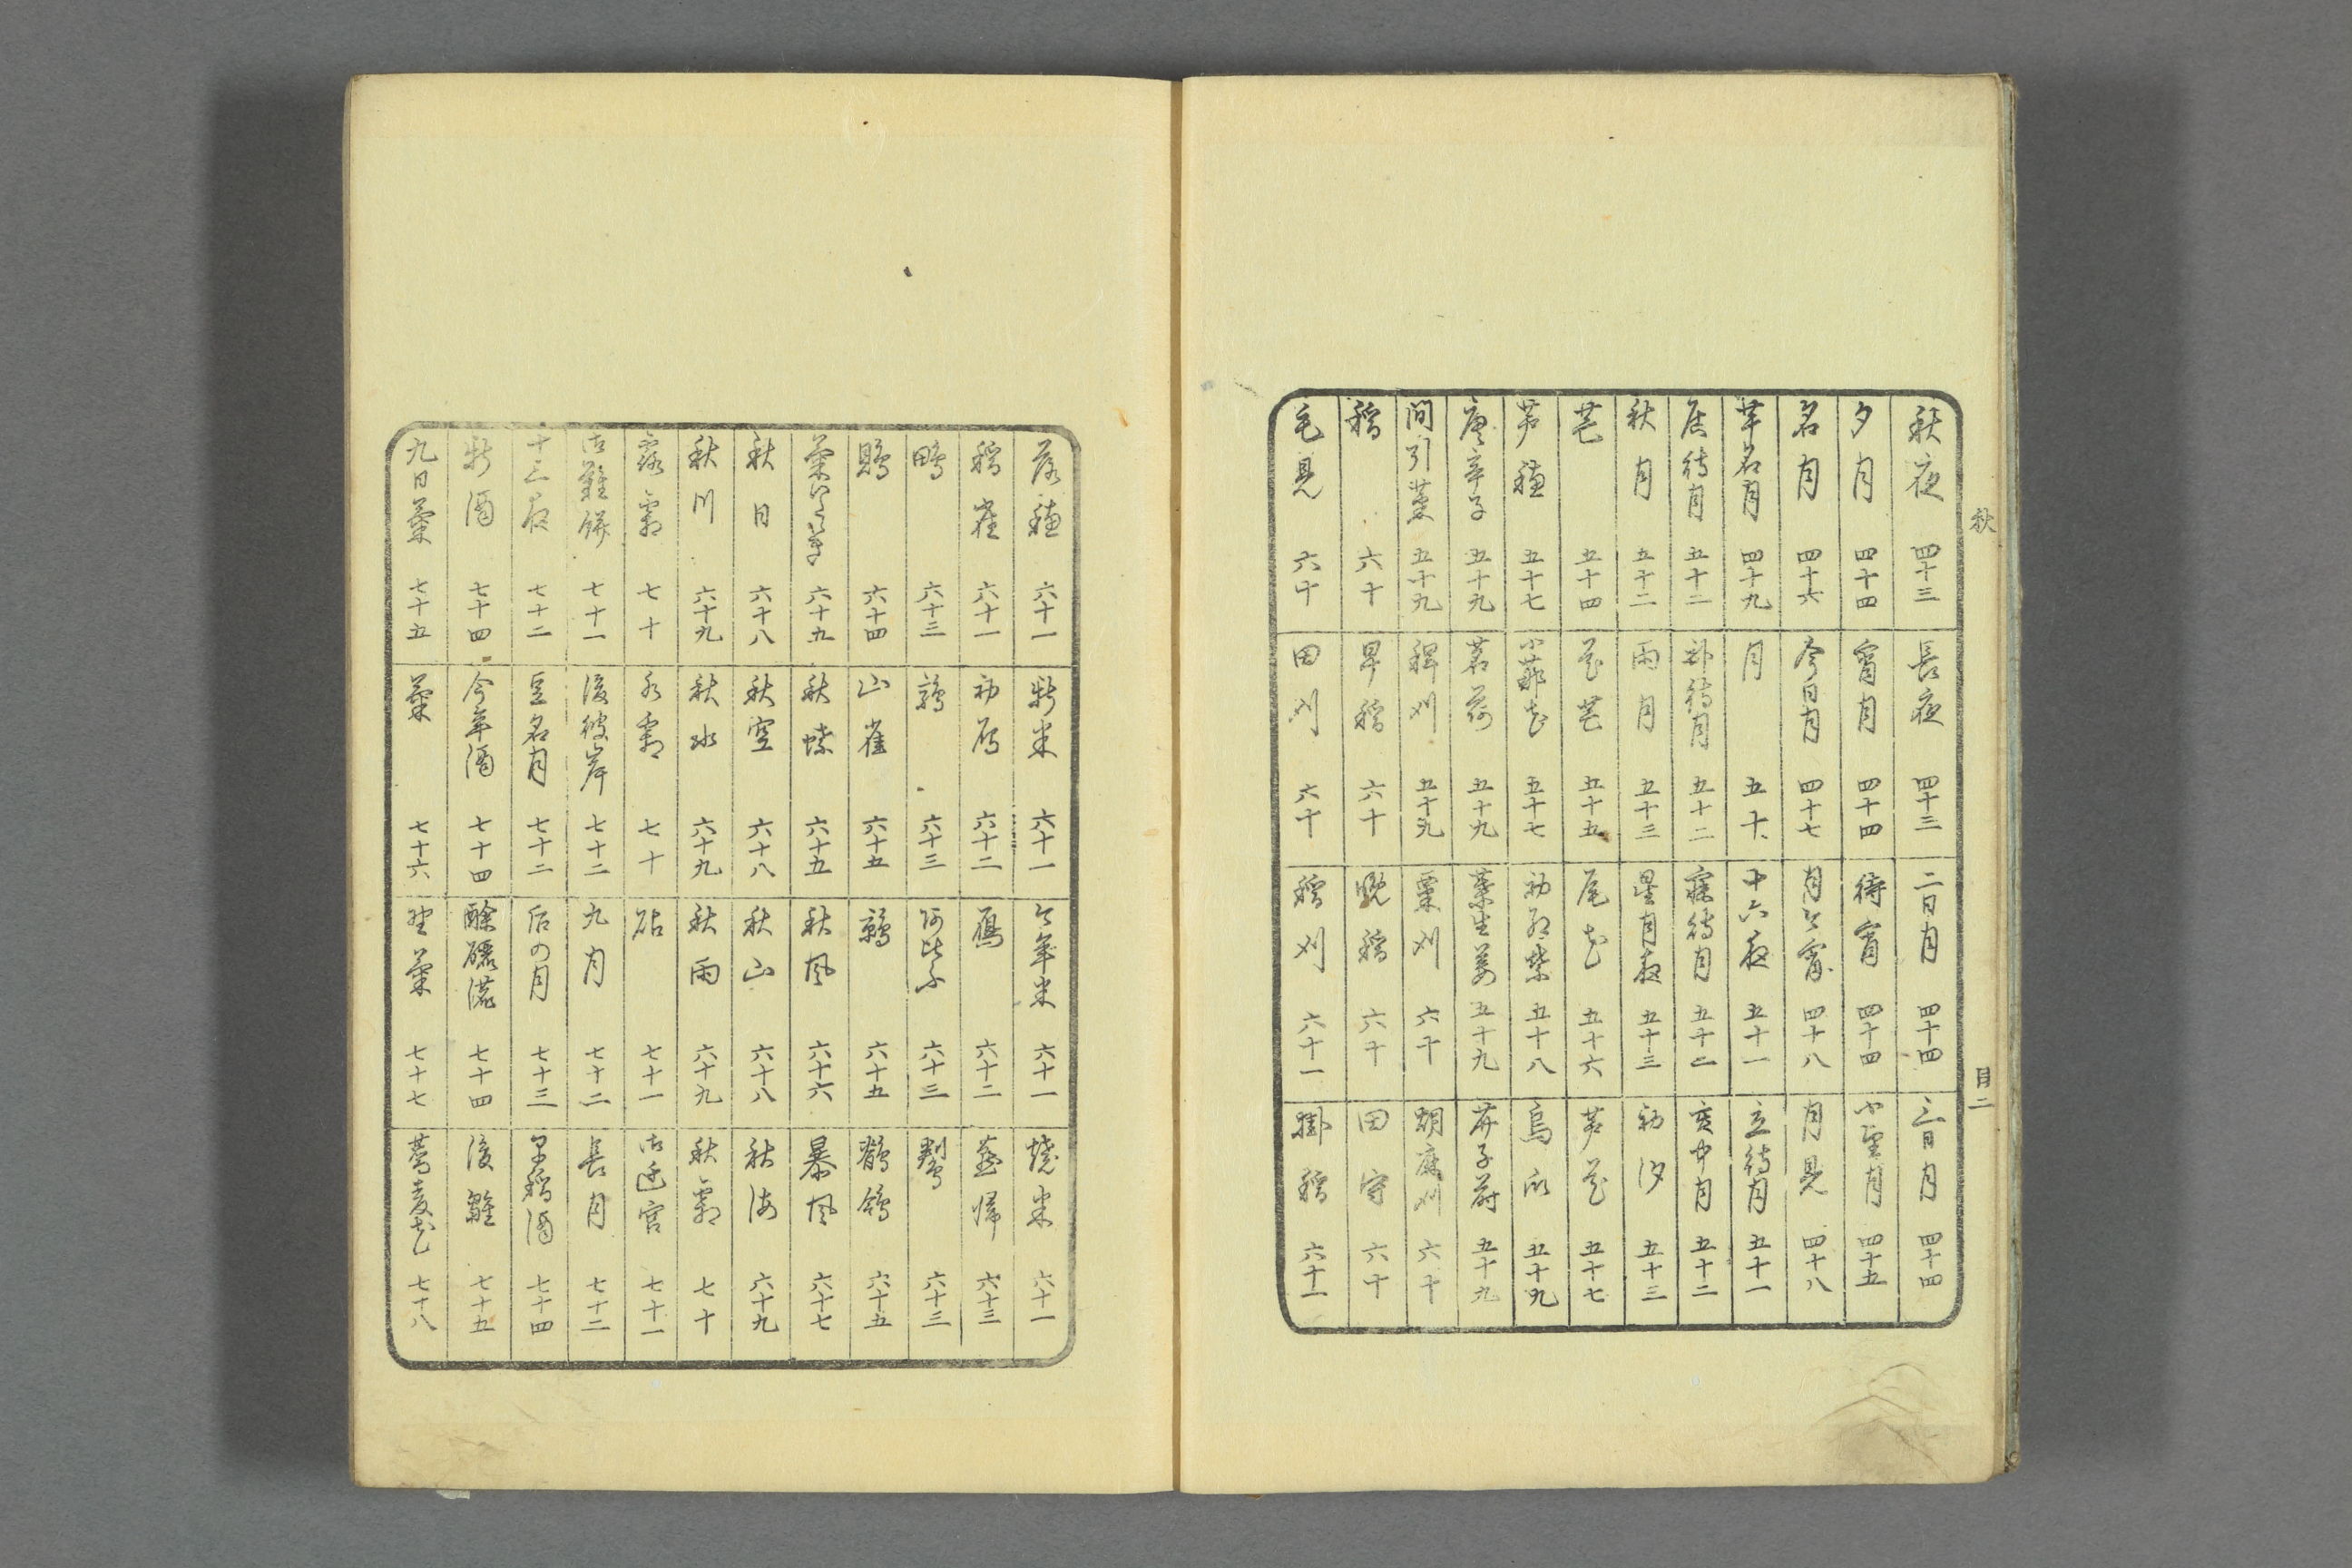 秋
目二
秋夜 四十三 長夜 四十三 二日月 四十四 三日月 四十四
夕月 四十四 宵月 四十四 待宵 四十四 小望月 四十五
名月 四十六 今日月 四十七 月今宵 四十八 月見 四十八
芋名月 四十九 月 五十 十六夜 五十一 立待月 五十一
居待月 五十二 臥待月 五十二 寐待月 五十二 亥中月 五十二
秋月 五十二 雨月 五十三 星月夜 五十三 初汐 五十三
芒 五十四 花芒 五十五 尾花 五十六 芦花 五十七
芦穗 五十七 五十七 五十八 烏瓜 五十九
唐辛子 五十九 茗荷 五十九 葉生姜 五十九 五十九
間引菜 五十九 稗刈 五十九 粟刈 六十 胡麻刈 六十
稻 六十 早稻 六十 晩稻 六十 田守 六十
毛見 六十 田刈 六十 稻刈 六十一 掛稻 六十一
落穗 六十一 新米 六十一 今年米 六十一 焼米 六十一
稻雀 六十一 初雁 六十二 鴈 六十二 燕帰 六十三
鴫 六十三 鶉 六十三 六十三 六十三
六十四 山雀 六十五 六十五 鶺鴒 六十五
六十五 秋蝶 六十五 秋風 六十六 暴風 六十七
秋日 六十八 秋空 六十八 秋山 六十八 秋海 六十九
秋川 六十九 秋水 六十九 秋雨 六十九 秋霜 七十
露霜 七十 水霜 七十 砧 七十一 御迁宮 七十一
御難餅 七十一 後彼岸 七十二 九月 七十二 長月 七十二
十三夜 七十二 豆名月 七十二 后の月 七十三 早稻酒 七十四
新酒 七十四 今年酒 七十四 酴醿漉 七十四 後雛 七十五
九日菊 七十五 菊 七十六 野菊 七十七 蕎麦花 七十八